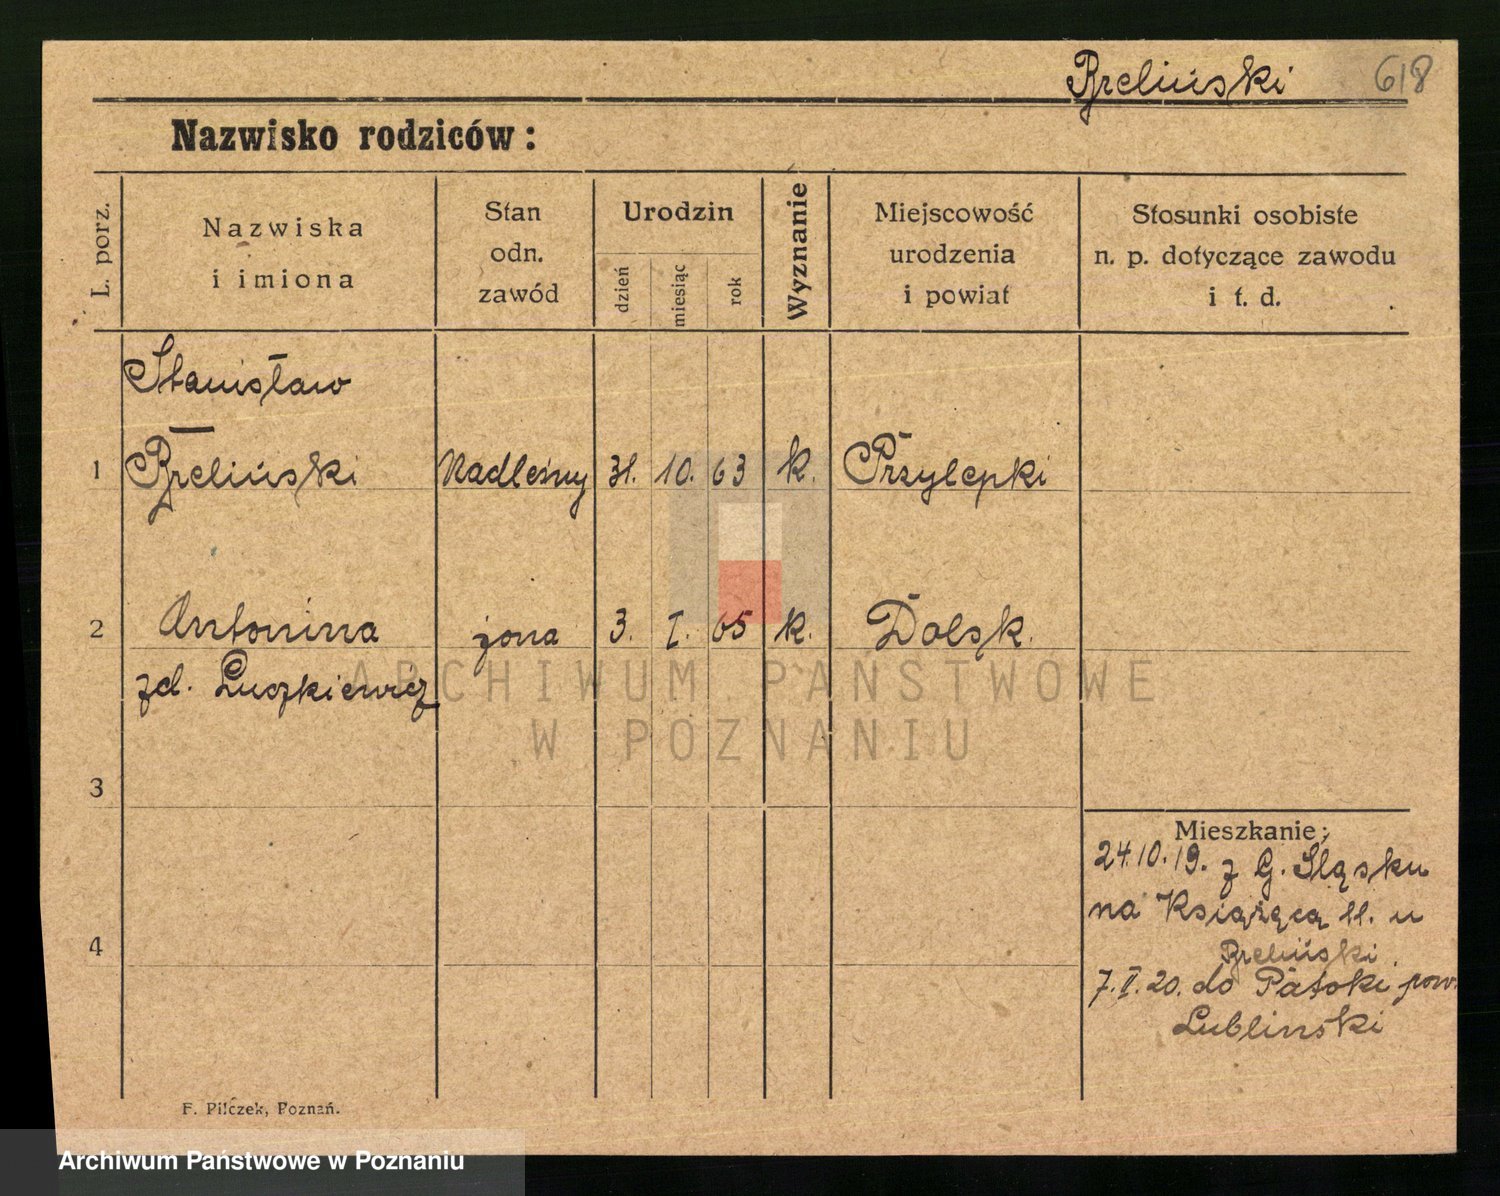 Breliński 618
Nazwisko rodziców :
L. porz.
Nazwiska
i imiona
Stan
odn.
zawód
Urodzin
dzień
miesiąc
rok
Wyznanie
Miejscowość
urodzenia
i powiat
Stosunki osobiste
n. p. dotyczące zawodu
i t. d.
Stanisław
1 Breliński Nadleśny 31. 10. 63 k. Przylepki
2 Antonina żona 3. I. 65 k. Dolsk.
zd. Luczkiewicz
3
4
Mieszkanie:
24.10.19. z G. Śląsku
na Książęcą 11. u
Breliński.
7.I.20. do Patoki pow.
Lublinski
F. Pilczek, Poznań.
ARCHIWUM PAŃSTWOWE
W POZNANIU
Archiwum Państwowe w Poznaniu